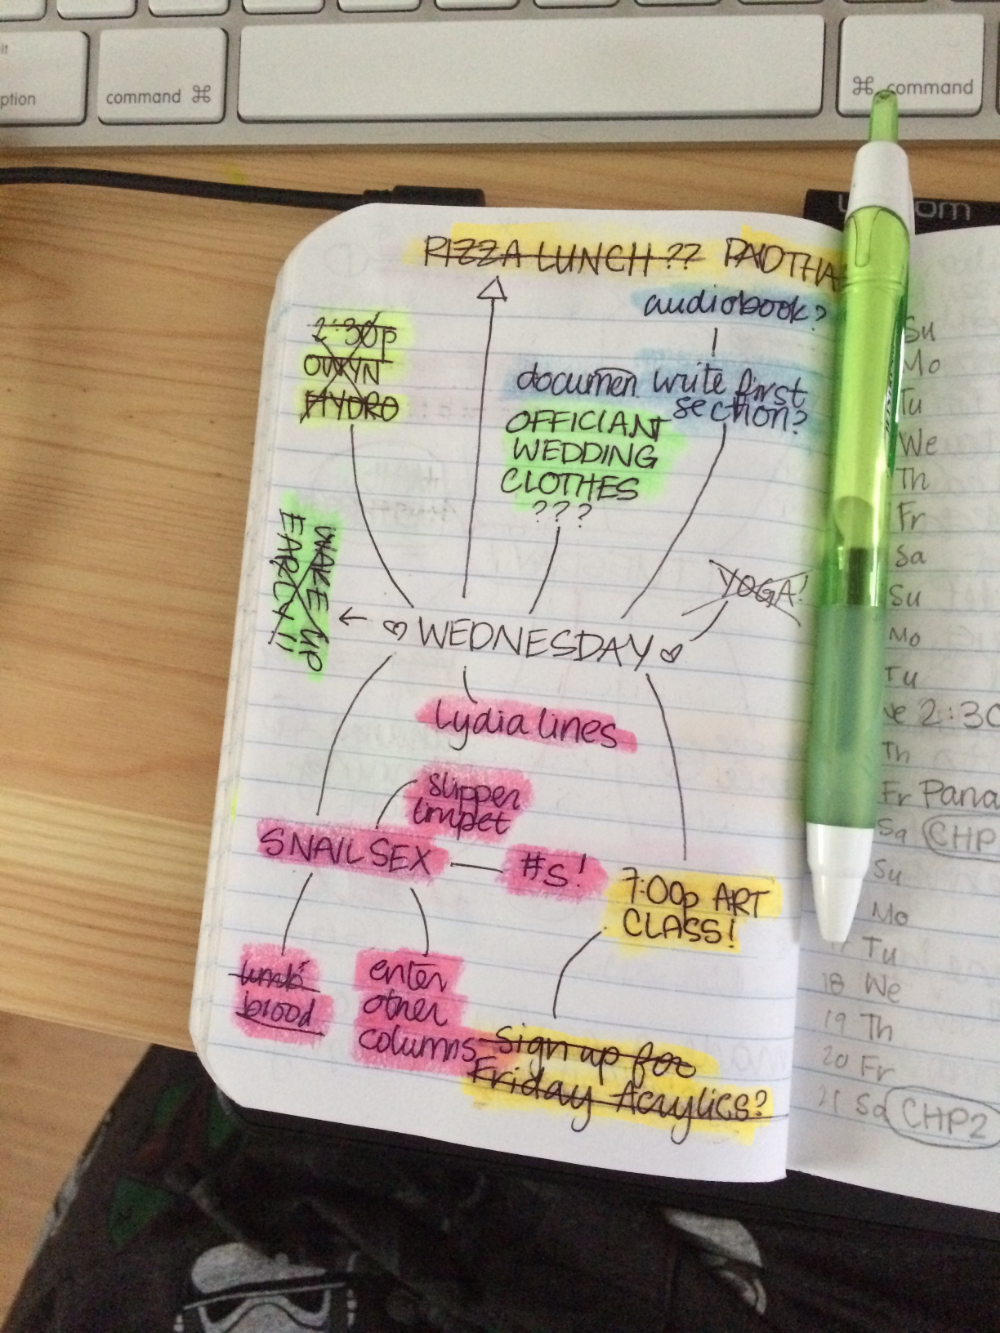 ption
command ⌘
⌘ command
PIZZA LUNCH ?? PADTHA
audiobook?
2:30p
OWYN
HYDRO
documen write first
section?
OFFICIANT
WEDDING
CLOTHES
???
WAKE UP
EARLY!!
YOGA!
WEDNESDAY
Lydia lines
slipper
limpet
SNAIL SEX
#s!
7:00p ART
CLASS!
blood
enter
other
columns
Sign up for
Friday Acrylics?
Su
Mo
Tu
We
Th
Fr
Sa
Su
Mo
Tu
We 2:30
Th
Fr Pana
Sa CHP
Su
Mo
17 Tu
18 We
19 Th
20 Fr
21 Sa CHP2